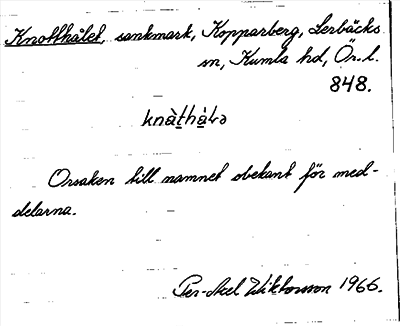 Knotthålet, sankmark, Kopparberg, Lerbäcks
sn, Kumla hd, Ör. l.
848.
knàt̠hȧ̀ɬə
Orsaken till namnet obekant för med-
delarna.
Per-Axel Wiktorsson 1966.